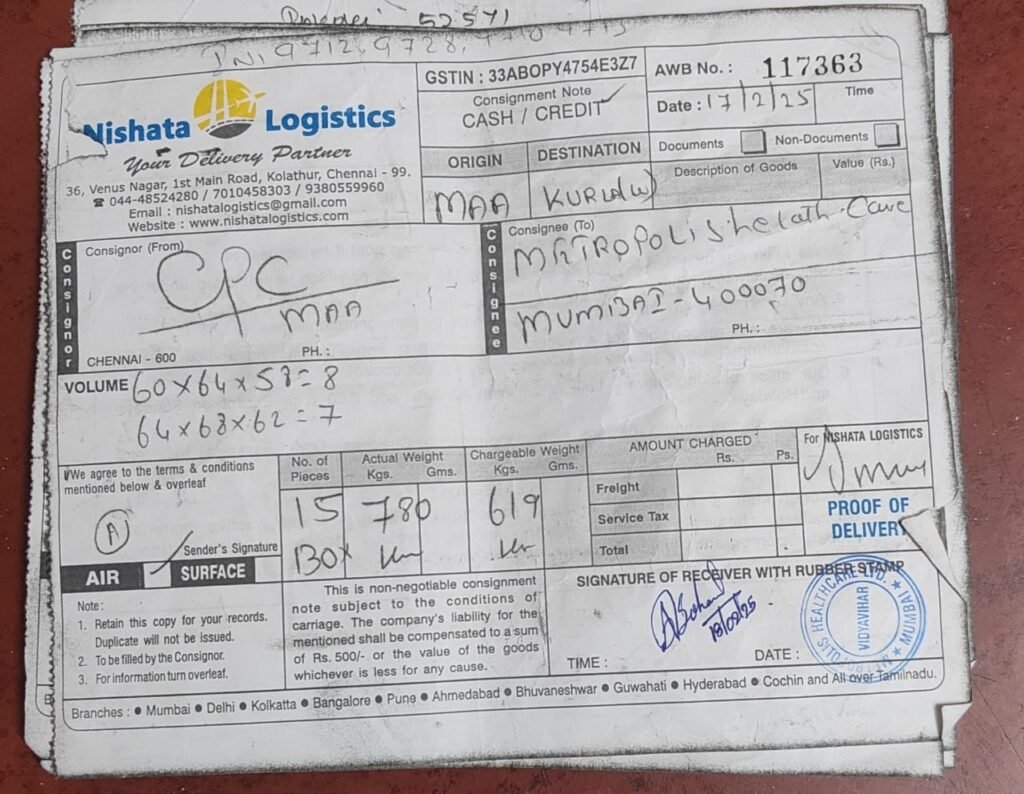 52541
9712, 9728,
Nishata Logistics
Your Delivery Partner
36, Venus Nagar, 1st Main Road, Kolathur, Chennai - 99.
☎ 044-48524280 / 7010458303 / 9380559960
Email : nishatalogistics@gmail.com
Website : www.nishatalogistics.com
GSTIN : 33ABOPY4754E3Z7
Consignment Note
CASH / CREDIT ✓
AWB No. : 117363
Date : 17/2/25 Time
Documents Non-Documents
ORIGIN DESTINATION
Description of Goods Value (Rs.)
MAA
Consignor
Consignor (From)
CPC
MAA
CHENNAI - 600 PH. :
Consignee
Consignee (To)
METROPOLIS helath. Care
MUMBAI - 400070
PH. :
VOLUME 60 x 64 x 58 = 8
64 x 68 x 62 = 7
I/We agree to the terms & conditions
mentioned below & overleaf
A
Sender's Signature
AIR ✓ SURFACE
No. of Pieces
15
BOX
Actual Weight
Kgs. Gms.
780
Chargeable Weight
Kgs. Gms.
619
AMOUNT CHARGED
Rs. Ps.
Freight
Service Tax
Total
For NISHATA LOGISTICS
PROOF OF
DELIVERY
Note :
1. Retain this copy for your records.
Duplicate will not be issued.
2. To be filled by the Consignor.
3. For information turn overleaf.
This is non-negotiable consignment
note subject to the conditions of
carriage. The company's liability for the
mentioned shall be compensated to a sum
of Rs. 500/- or the value of the goods
whichever is less for any cause.
SIGNATURE OF RECEIVER WITH RUBBER STAMP
18/02/25
TIME : DATE :
METROPOLIS HEALTHCARE LTD.
VIDYAVIHAR
★ MUMBAI ★
Branches : ● Mumbai ● Delhi ● Kolkatta ● Bangalore ● Pune ● Ahmedabad ● Bhuvaneshwar ● Guwahati ● Hyderabad ● Cochin and All over Tamilnadu.